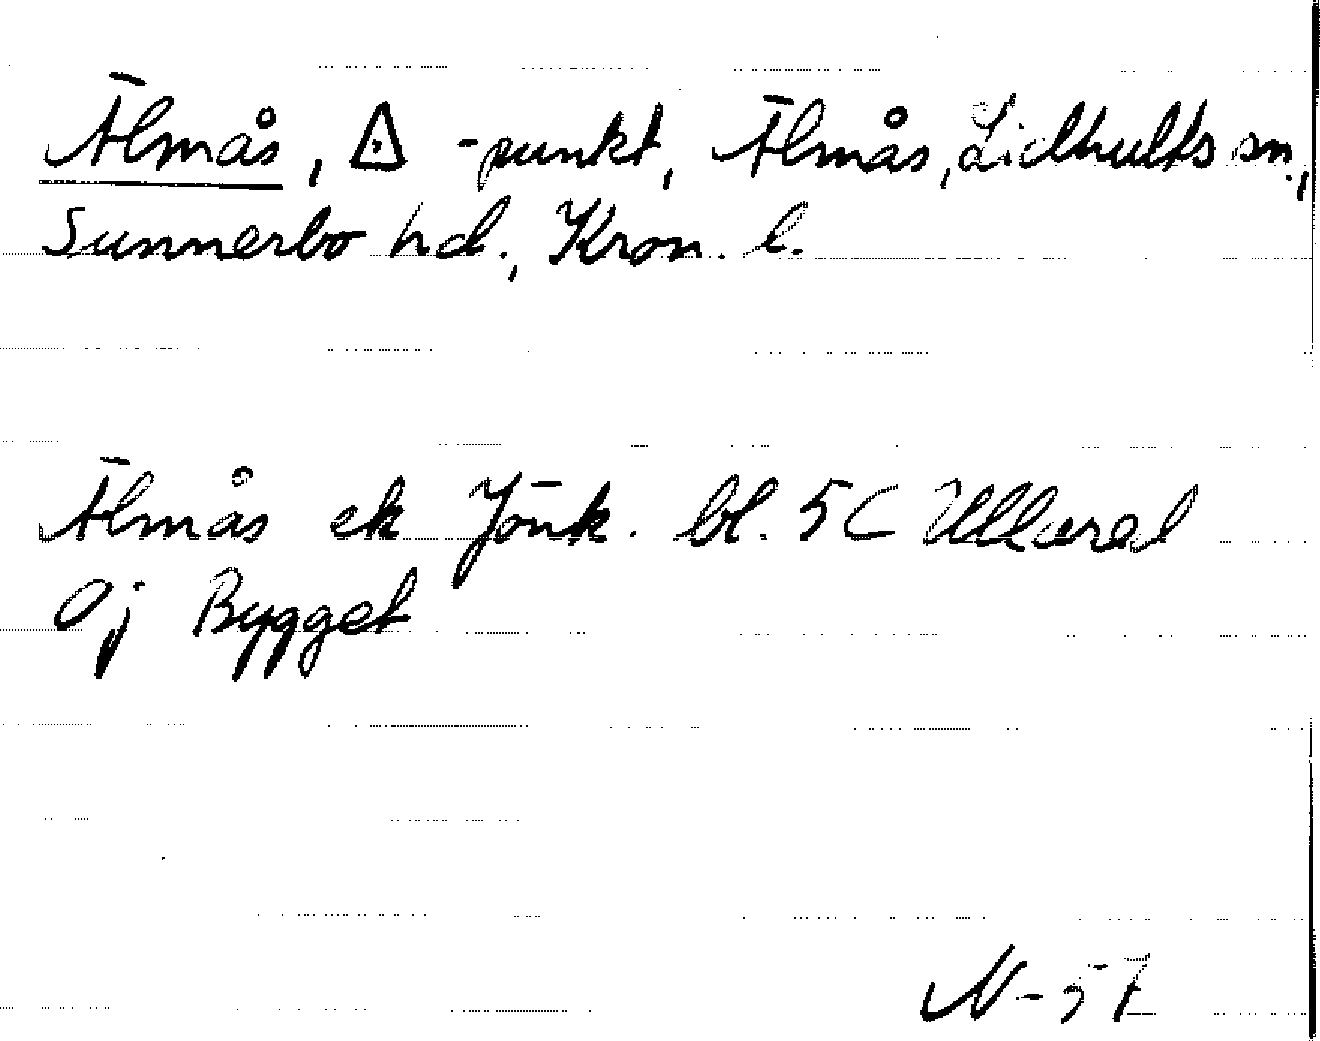 Älmås, △ -punkt, Älmås, Lidhults sn.,
Sunnerbo hd., Kron. l.
Älmås ek Jönk. bl. 5C Ullared
Oj Bygget
N-57